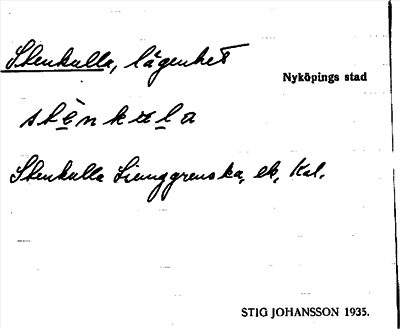 Stenkulla, lägenhet
Nyköpings stad
stènkula
Stenkulla Ljunggrenska, ek. Kal.
STIG JOHANSSON 1935.